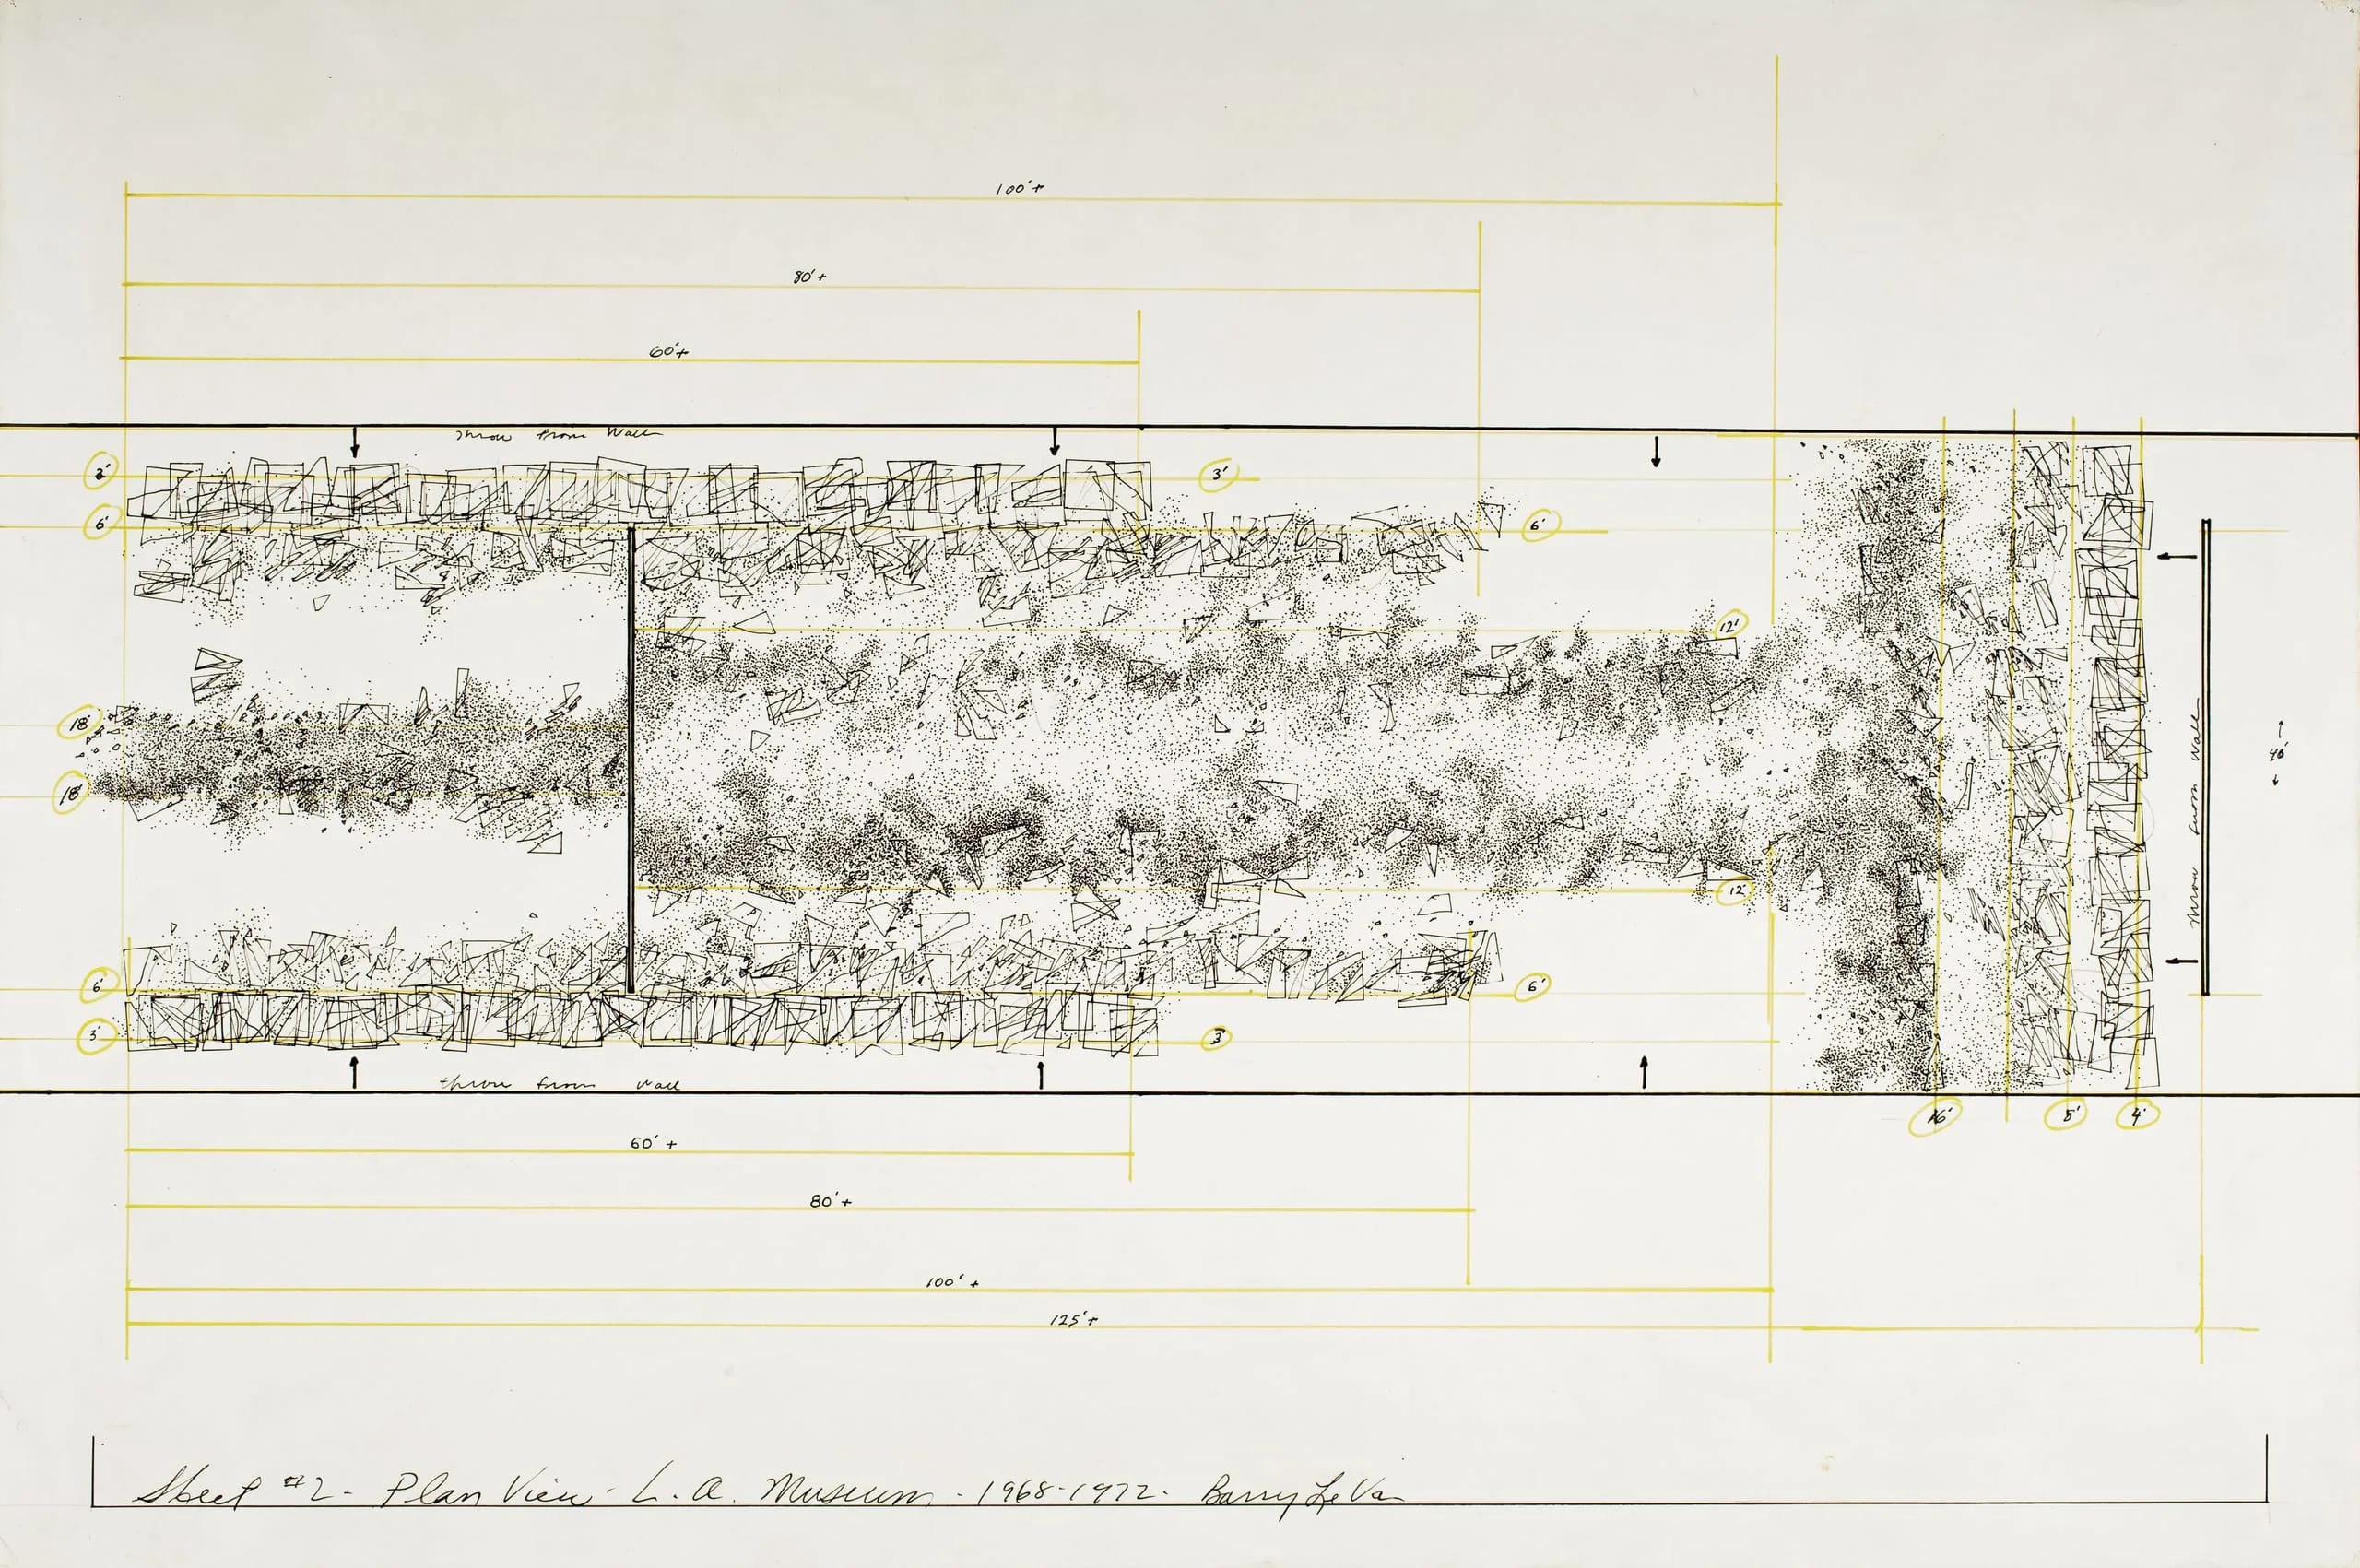 100'+
80'+
60'+
Throw from Wall
3'
3'
6'
6'
12'
18'
18'
Throw from Wall
40'
12'
6'
6'
3'
3'
throw from wall
16'
8'
4'
60'+
80'+
100'+
125'+
Sheet #2 - Plan View - L.A. Museum - 1968-1972 - Barry Le Va